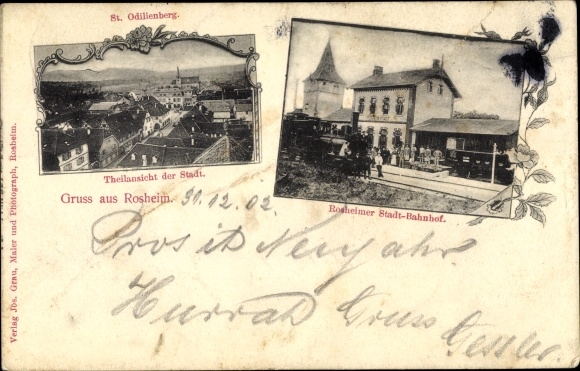 St. Odilienberg.
Theilansicht der Stadt.
Rosheimer Stadt-Bahnhof.
Gruss aus Rosheim. 31.12.02.
Prosit Neujahr
Hurrah Gruss
Gessler.
Verlag Jos. Grau, Maler und Photograph, Rosheim.